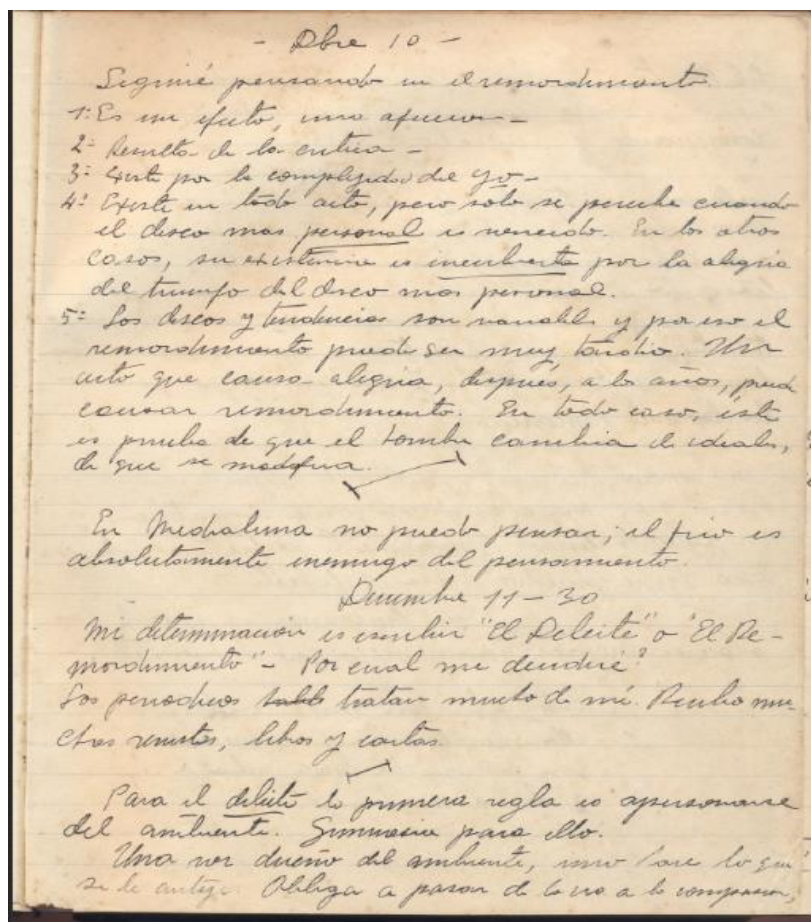 - Dbre 10 -
Seguiré pensando en el remordimiento.
1º Es un efecto, una afección -
2º Resulta de la crítica -
3º Existe por la complejidad del yo -
4º Existe en todo acto, pero sólo se percibe cuando
el deseo mas personal es vencido. En los otros
casos, su existencia es encubierta por la alegría
del triunfo del deseo mas personal.
5º Los deseos y tendencias son variables y por eso el
remordimiento puede ser muy tardío. Un
acto que causa alegría, después, a los años, puede
causar remordimiento. En todo caso, éste
es prueba de que el hombre cambia de ideales,
de que se modifica.
En Medialuna no puedo pensar; el frío es
absolutamente enemigo del pensamiento.
Diciembre 11-30
Mi determinación es escribir "El Deleite" o "El Re-
mordimiento" - Por cual me decidiré?
Los periódicos tratan mucho de mí. Recibo mu-
chas revistas, libros y cartas.
Para el deleite la primera regla es apersonarse
del ambiente. Gimnasia para ello.
Una vez dueño del ambiente, uno hace lo que
se le antoja. Obliga a pasar de la ira a la compasión,